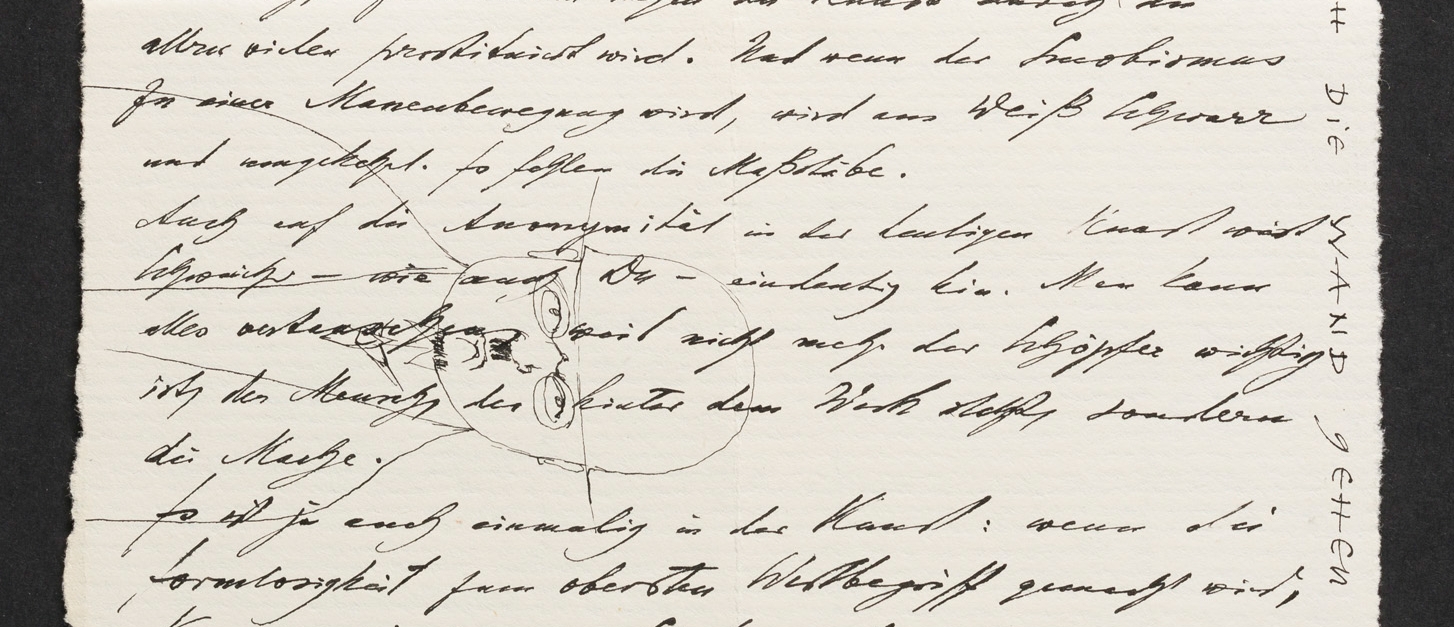 allzu vielen prostituiert wird. Und wenn der Snobismus
zu einer Massenbewegung wird, wird aus Weiß Schwarz
und umgekehrt. Es fehlen die Maßstäbe.
Auch auf die Anonymität in der heutigen Kunst weist
Schweicher – wie auch Du – eindeutig hin. Man kann
alles vertauschen, weil nicht mehr der Schöpfer wichtig
ist, der Mensch, der hinter dem Werk steht, sondern
die Mache.
Es ist ja auch einmalig in der Kunst: wenn die
Formlosigkeit zum obersten Wertbegriff gemacht wird,
DIE WAND GEHEN